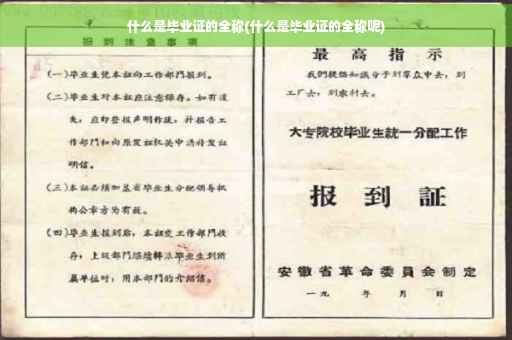 什么是毕业证的全称(什么是毕业证的全称呢)
报到注意事项
(一)毕业生凭本证向工作部門报到。
(二)毕业生对本证应注意保存。如有遗
失，应即登报声明作废，并报告工
作部門和向原发证机关申请补发证
明信。
(三)本证必须加盖省毕业生分配领导机
构公章方为有效。
(四)毕业生报到后，本证交工作部門收
存；上级部門
单位时，用本部門的介绍信。
最高指示
我們提倡知识分子到羣众中去，到
工厂去，到农村去。
大专院校毕业生統一分配工作
报到証
安徽省革命委員会制定
一九 年 月 日